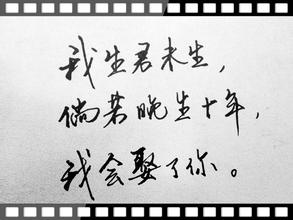 我生君未生，
倘若晚生十年，
我会娶了你。